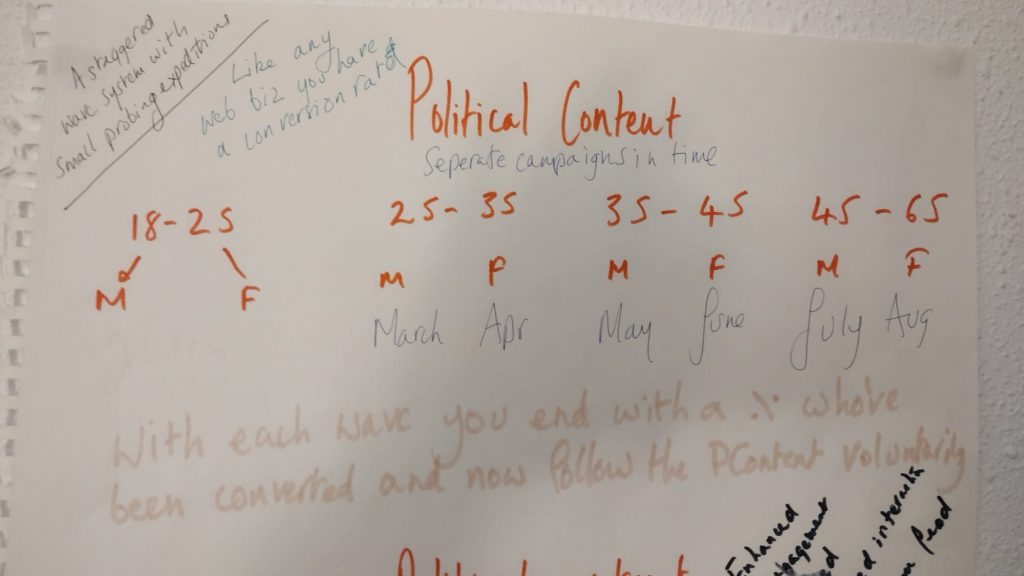 A staggered
wave system with
small probing expeditions
Like any
web biz you have
a conversion rate
Political Content
Seperate campaigns in time
18-25 25-35 35-45 45-65
M F M F M F M F
March Apr May June July Aug
With each wave you end with a % who've
been converted and now follow the PContent voluntarily
Enhanced